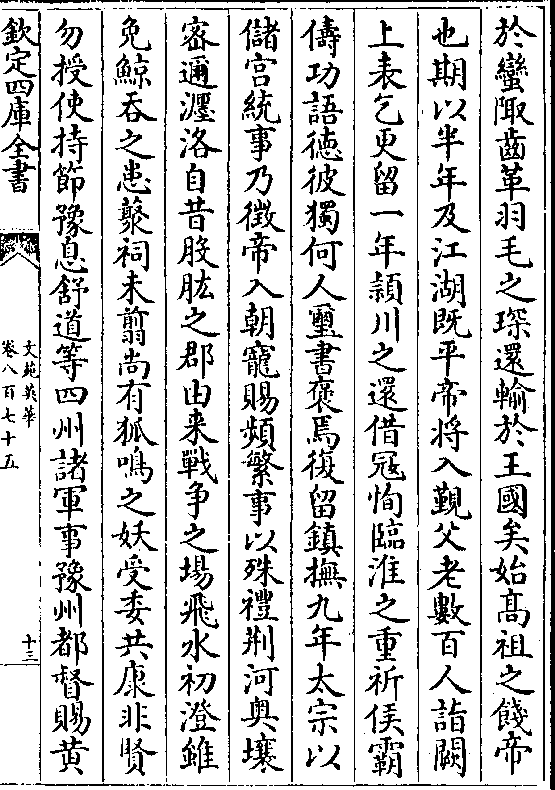 於蠻陬齒革羽毛之琛還輸於王國矣始髙祖之餞帝
也期以半年及江湖既平帝将入覲父老數百人詣闕
上表乞更留一年潁川之還借冦恂臨淮之重祈侯霸
儔功語徳彼獨何人璽書褒焉復留鎮撫九年太宗以
儲宫統事乃徴帝入朝寵賜頻繁事以殊禮荆河奥壤
宻邇瀍洛自昔股肱之郡由来戰争之場飛水初澄雖
免鯨吞之患藂祠未翦尚有狐鳴之妖受委共康非賢
勿授使持節豫息舒道等四州諸軍事豫州都督賜黄
欽定四庫全書
文苑英華
卷八百七十五
十三